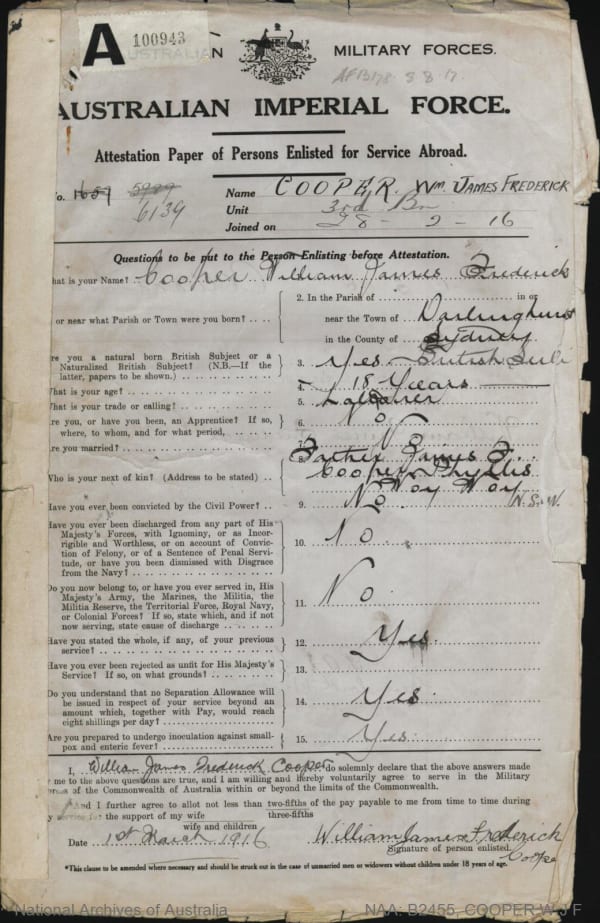 A 100943
N MILITARY FORCES.
AF13178. 8 8 17.
AUSTRALIAN IMPERIAL FORCE.
Attestation Paper of Persons Enlisted for Service Abroad.
o. 1657 6139
Name COOPER. Wm. JAMES FREDERICK
Unit 3rd Bn
Joined on 28 - 2 - 16
Questions to be put to the Person Enlisting before Attestation.
hat is your Name? Cooper William James Frederick
2. In the Parish of in or
or near what Parish or Town were you born? near the Town of Darlinghurst
in the County of Sydney
re you a natural born British Subject or a
Naturalized British Subject? (N.B.—If the 3. Yes British
latter, papers to be shown.)
What is your age? 4. 18 Years
What is your trade or calling? 5.
re you, or have you been, an Apprentice? If so, 6. No
where, to whom, and for what period,
re you married? 7.
8. Father James F.
Who is your next of kin? (Address to be stated) Cooper Phyllis
Woy Woy N.S.W.
Have you ever been convicted by the Civil Power? 9. No
Have you ever been discharged from any part of His
Majesty's Forces, with Ignominy, or as Incor-
rigible and Worthless, or on account of Convic- 10. No
tion of Felony, or of a Sentence of Penal Servi-
tude, or have you been dismissed with Disgrace
from the Navy?
Do you now belong to, or have you ever served in, His
Majesty's Army, the Marines, the Militia, the
Militia Reserve, the Territorial Force, Royal Navy, 11. No
or Colonial Forces? If so, state which, and if not
now serving, state cause of discharge
Have you stated the whole, if any, of your previous 12. Yes
service?
Have you ever been rejected as unfit for His Majesty's 13.
Service? If so, on what grounds?
Do you understand that no Separation Allowance will
be issued in respect of your service beyond an 14. Yes
amount which, together with Pay, would reach
eight shillings per day?
Are you prepared to undergo inoculation against small- 15. Yes
pox and enteric fever?
I, William James Frederick Cooper do solemnly declare that the above answers made
me to the above questions are true, and I am willing and hereby voluntarily agree to serve in the Military
of the Commonwealth of Australia within or beyond the limits of the Commonwealth.
And I further agree to allot not less than two-fifths of the pay payable to me from time to time during
three-fifths
service for the support of my wife
wife and children
Date 1st March 1916 William James Frederick Cooper
Signature of person enlisted.
*This clause to be amended where necessary and should be struck out in the case of unmarried men or widowers without children under 18 years of age.
National Archives of Australia NAA: B2455, COOPER W J F